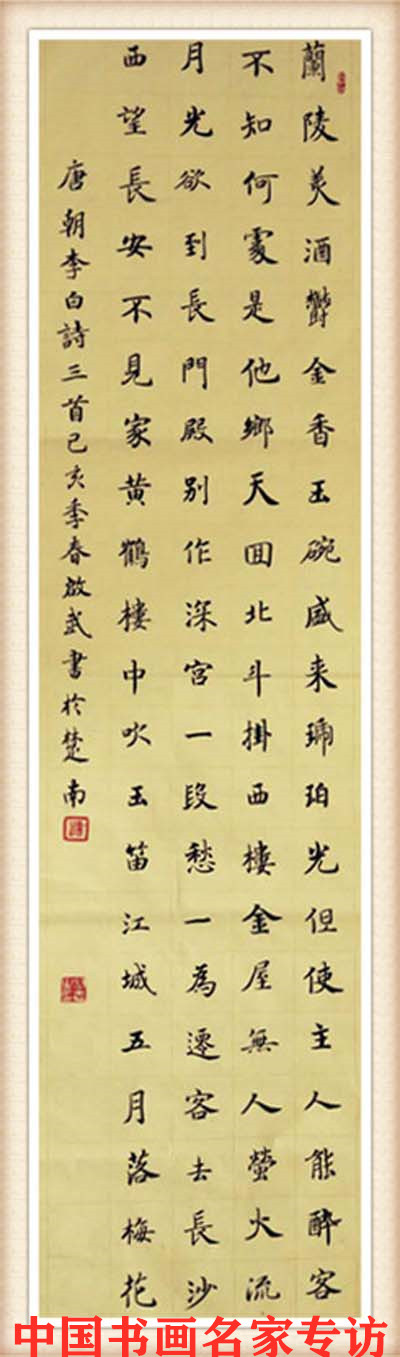 蘭陵美酒鬱金香玉碗盛来琥珀光但使主人能醉客
不知何處是他鄉天囬北斗掛西樓金屋無人螢火流
月光欲到長門殿别作深宫一段愁一為遷客去長沙
西望長安不見家黄鶴樓中吹玉笛江城五月落梅花
唐朝李白詩三首己亥季春啟武書於楚南
中国书画名家专访